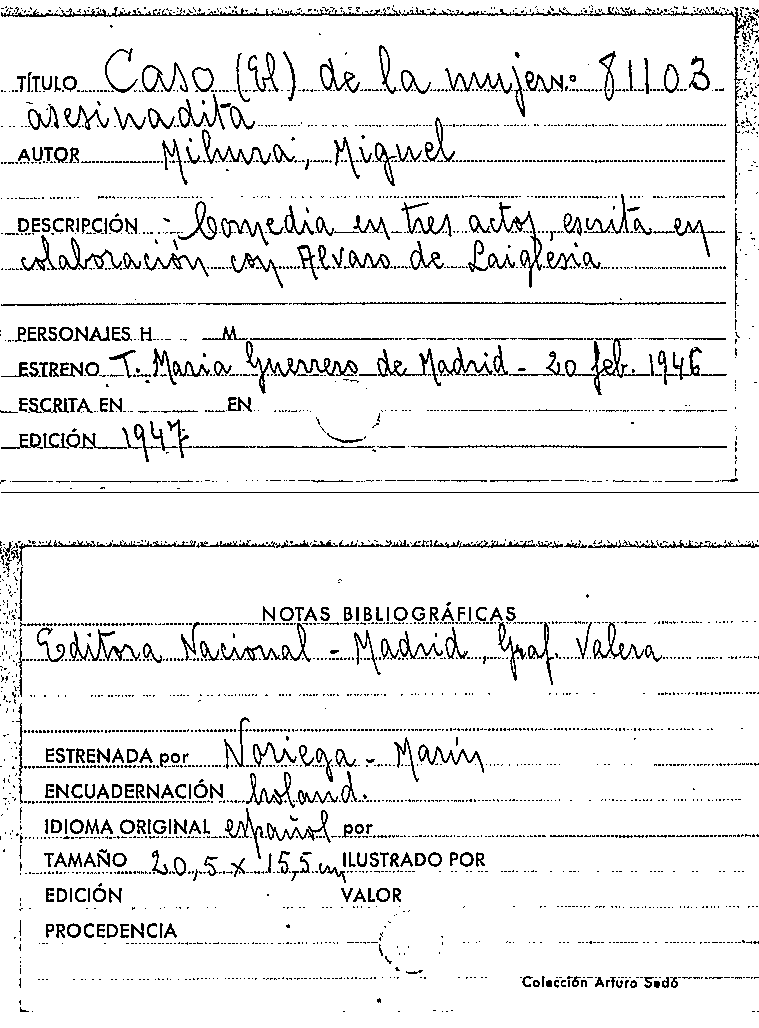 TÍTULO Caso (El) de la mujer N.º 81103
asesinadita
AUTOR Mihura, Miguel
DESCRIPCIÓN - Comedia en tres actos, escrita en
colaboración con Alvaro de Laiglesia
PERSONAJES H M
ESTRENO T. Maria Guerrero de Madrid - 20 feb. 1946
ESCRITA EN EN
EDICIÓN 1947
NOTAS BIBLIOGRÁFICAS
Editora Nacional - Madrid, Graf. Valera
ESTRENADA por Noriega - Marín
ENCUADERNACIÓN holand.
IDIOMA ORIGINAL español por
TAMAÑO 20,5 x 15,5 cm ILUSTRADO POR
EDICIÓN VALOR
PROCEDENCIA
Colección Arturo Sedó